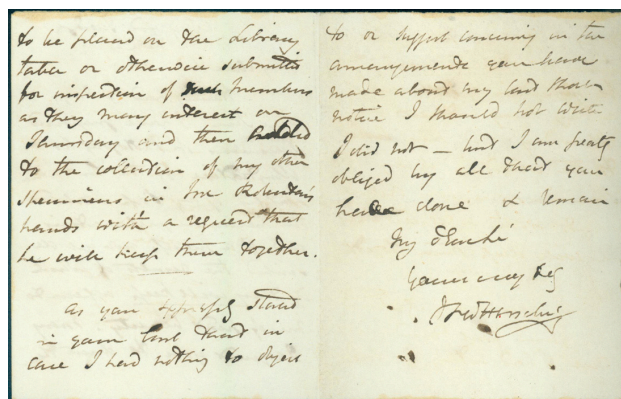 to be placed on the Library
table or otherwise submitted
for inspection of such Members
as they may interest on
Thursday and then added
to the collection of my other
specimens in Mr Robertons
hands with a request that
he will keep them together.
as you expressly stated
in your last that in
case I had nothing to object
to or suggest concerning in the
arrangements you have
made about my last
notice I should not write
I did not – but I am greatly
obliged by all that you
have done & remain
My
Yours very
JFWHerschel